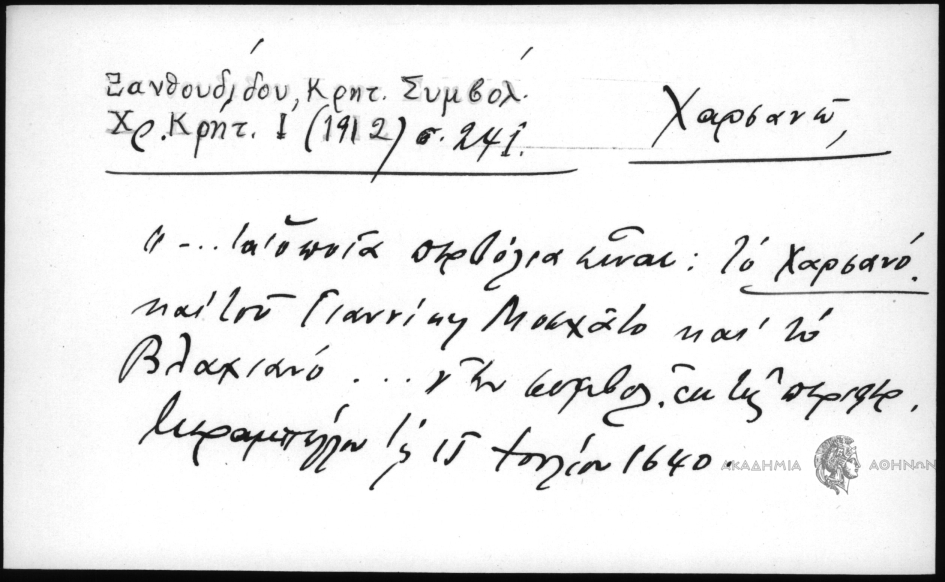 Ξανθουδίδου, Κρητ. Συμβόλ.
Χρ. Κρήτ. Ι (1912) σ. 241.
Χαρσανῶ,
"... τὰ ὁποῖα περβόλια εἶναι: τὸ Χαρσανό.
καὶ τοῦ Γιαννίκη Μοσχᾶτο καὶ τὸ
Βλαχιανό ... συμβολ. ἐκ τῆς περιφερ.
Μεραμπέλλου τῆς 15 Ἰουλίου 1640.
ΑΚΑΔΗΜΙΑ ΑΘΗΝΩΝ